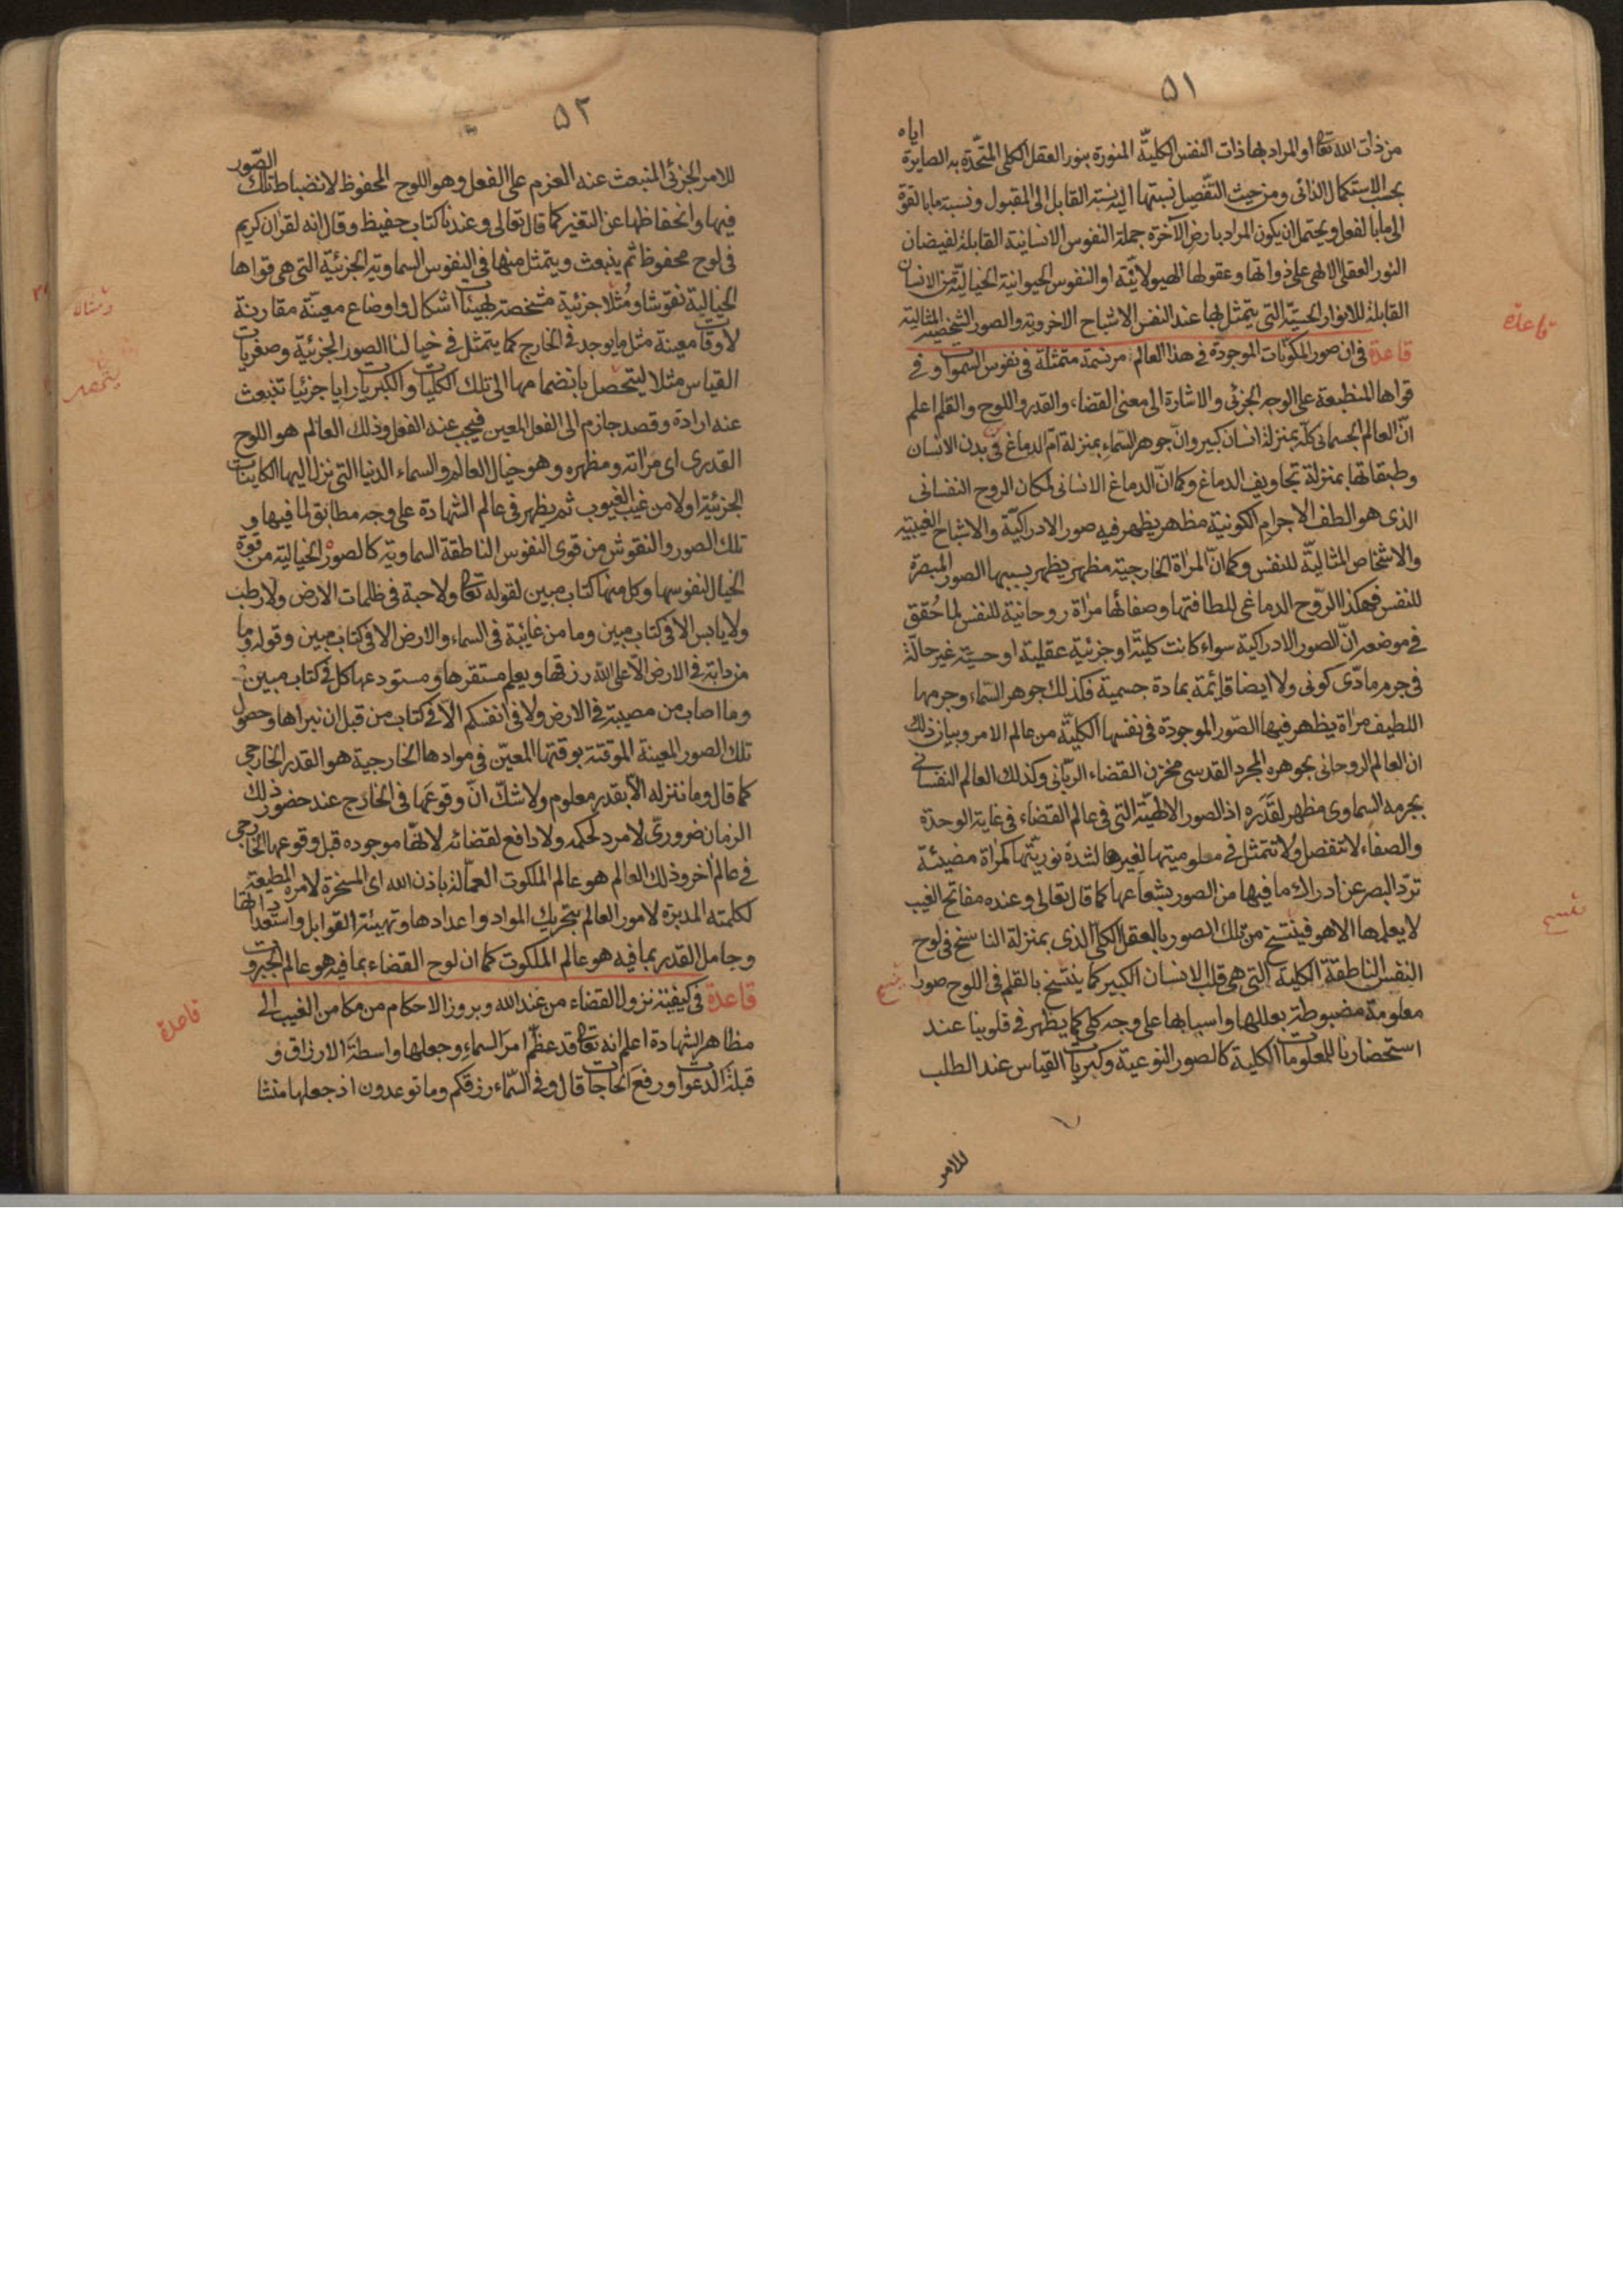 ٥١
من ذات الله تعالى او المراد بها ذات النفس الكلية المنورة بنور العقل الكلى المتحدة به الصايرة اياه
بحسب الاستكمال الذاتى ومن حيث التفصيل نسبتها اليه نسبة القابل الى المقبول ونسبة ما بالقوة
الى ما بالفعل ويحتمل ان يكون المراد بارض الآخرة جملة النفوس الانسانية القابلة لفيضان
النور العقلى الالهى على ذواتها وعقولها الهيولانية او النفوس الحيوانية الخيالية من الانسان
القابلة للانوار الحسية التى يتمثل بها عند النفس الاشباح الاخروية والصور الشخصية المثالية
قاعدة
قاعدة فى ان صور المكونات الموجودة فى هذا العالم مرتسمة متمثلة فى نفوس السموات وفى
قواها المنطبعة على الوجه الجزئى والاشارة الى معنى القضاء والقدر واللوح والقلم اعلم
ان العالم الجسمانى كله بمنزلة انسان كبير وان جوهر السماء بمنزلة ام الدماغ فى بدن الانسان
وطبقاتها بمنزلة تجاويف الدماغ وكما ان الدماغ الانسانى لمكان الروح النفسانى
الذى هو الطف الاجرام الكونية مظهر يظهر فيه صور الادراكية والاشباح الغيبية
والاشخاص المثالية للنفس وكما ان المرآة الخارجية مظهر يظهر بسببها الصور المبصرة
للنفس فهكذا الروح الدماغى للطافتها وصفائها مرآة روحانية للنفس لما حقق
فى موضعه ان الصور الادراكية سواء كانت كلية او جزئية عقلية او حسية غير حالة
فى جرم مادى كونى ولا ايضا قايمة بمادة جسمية فكذلك جوهر السماء وجرمها
اللطيف مرآة يظهر فيها الصور الموجودة فى نفسها الكلية من عالم الامر وبيان ذلك
ان العالم الروحانى بجوهره المجرد القدسى مخزن القضاء الربانى وكذلك العالم النفسانى
بجرمه السماوى مظهر لقدره اذ الصور الالهية التى فى عالم القضاء فى غاية الوحدة
والصفاء لا تنفصل ولا تتمثل فى معلوميتها لغيرها لشدة نوريتها كمرآة مضيئة
ترد البصر عن ادراك ما فيها من الصور بشعاعها كما قال تعالى وعنده مفاتح الغيب
لا يعلمها الا هو فينتسخ من تلك الصور بالعقل الكلى الذى بمنزلة الناسخ فى لوح
النفس الناطقة الكلية التى هى قلب الانسان الكبير كما ينتسخ بالقلم فى اللوح صورا
معلومة مضبوطة بعللها واسبابها على وجه كلى كما يظهر فى قلوبنا عند
استحضارنا للمعلومات الكلية كالصور النوعية وكبريات القياس عند الطلب
للامر
٥٢
للامر الجزئى المنبعث عنه العزم على الفعل وهو اللوح المحفوظ لانضباط تلك الصور
فيها وانحفاظها عن التغير كما قال تعالى وعندنا كتاب حفيظ وقال انه لقرآن كريم
فى لوح محفوظ ثم ينبعث ويتمثل منها فى النفوس السماوية الجزئية التى هى قواها
الخيالية نقوشا ومثلا جزئية متشخصة بهيئات اشكال واوضاع معينة مقارنة
لاوقات معينة مثل ما يوجد فى الخارج كما يتمثل فى خيالنا الصور الجزئية وصغريات
القياس مثلا ليتحصل بانضمامها الى تلك الكليات والكبريات رايا جزئيا تنبعث
عنه ارادة وقصد جازم الى الفعل المعين فيجب عنه الفعل وذلك العالم هو اللوح
القدرى اى مرآته ومظهره وهو خيال العالم والسماء الدنيا التى نزل اليها الكاينات
الجزئية اولا من غيب الغيوب ثم يظهر فى عالم الشهادة على وجه مطابق لما فيها و
تلك الصور والنقوش من قوى النفوس الناطقة السماوية كالصور الخيالية من قوة
الخيال لنفوسها وكل منها كتاب مبين لقوله تعالى ولا حبة فى ظلمات الارض ولا رطب
ولا يابس الا فى كتاب مبين وما من غائبة فى السماء والارض الا فى كتاب مبين وقوله وما
من دابة فى الارض الا على الله رزقها ويعلم مستقرها ومستودعها كل فى كتاب مبين
وما اصاب من مصيبة فى الارض ولا فى انفسكم الا فى كتاب من قبل ان نبراها وحصول
تلك الصور المعينة الموقتة بوقتها المعين فى موادها الخارجية هو القدر الخارجى
كما قال وما ننزله الا بقدر معلوم ولا شك ان وقوعها فى الخارج عند حضور ذلك
الزمان ضرورى لا مرد لحكمه ولا دافع لقضائه لانها موجوده قبل وقوعها الخارجى
فى عالم آخر وذلك العالم هو عالم الملكوت العمالة باذن الله اى المسخرة لامره المطيعة
لكلمته المدبرة لامور العالم بتحريك المواد واعدادها وتهيئة القوابل واستعداداتها
وحامل القدر بما فيه هو عالم الملكوت كما ان لوح القضاء بما فيه هو عالم الجبروت
قاعدة
قاعدة فى كيفية نزول القضاء من عند الله وبروز الاحكام من مكامن الغيب الى
مظاهر الشهادة اعلم انه تعالى قد عظم امر السماء وجعلها واسطة الارزاق و
قبلة الدعوات ورفع الحاجات قال وفى السماء رزقكم وما توعدون اذ جعلها منشا